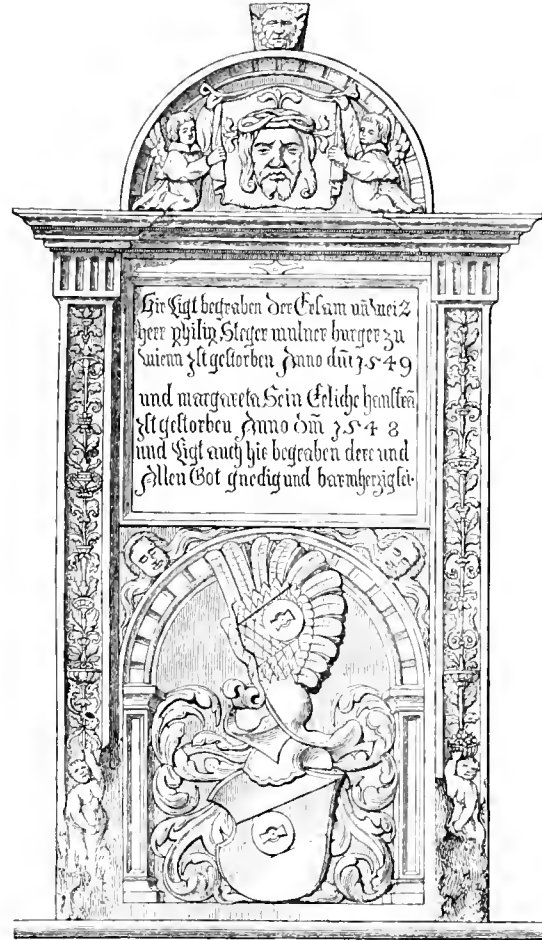 Hir Ligt begraben der Ersam uñ weis
herr philip Steger mulner burger zu
wienn Ist gestorben Anno dm̄ 1549
und margareta Sein Eeliche hausfrā
Ist gestorben Anno dm̄ 1548
und Ligt auch hie begraben dere und
Allen Got gnedig und barmherzig sei.